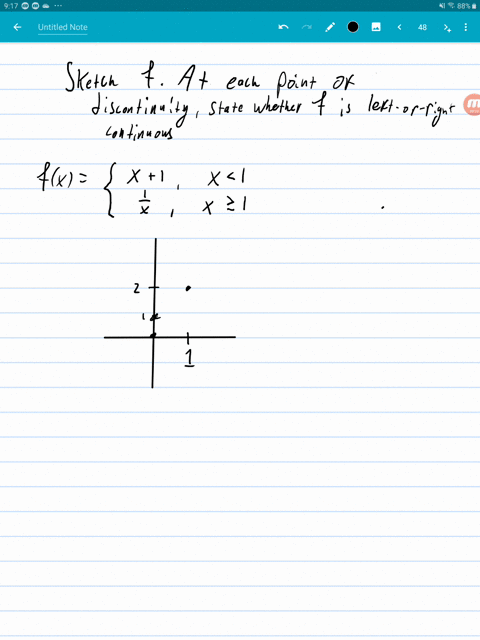 9:17
88%
Untitled Note
48
Sketch f. At each point of
discontinuity, state whether f is left-or-right
continuous
f(x) = { x + 1, x < 1
1/x, x ≥ 1
2
1
1